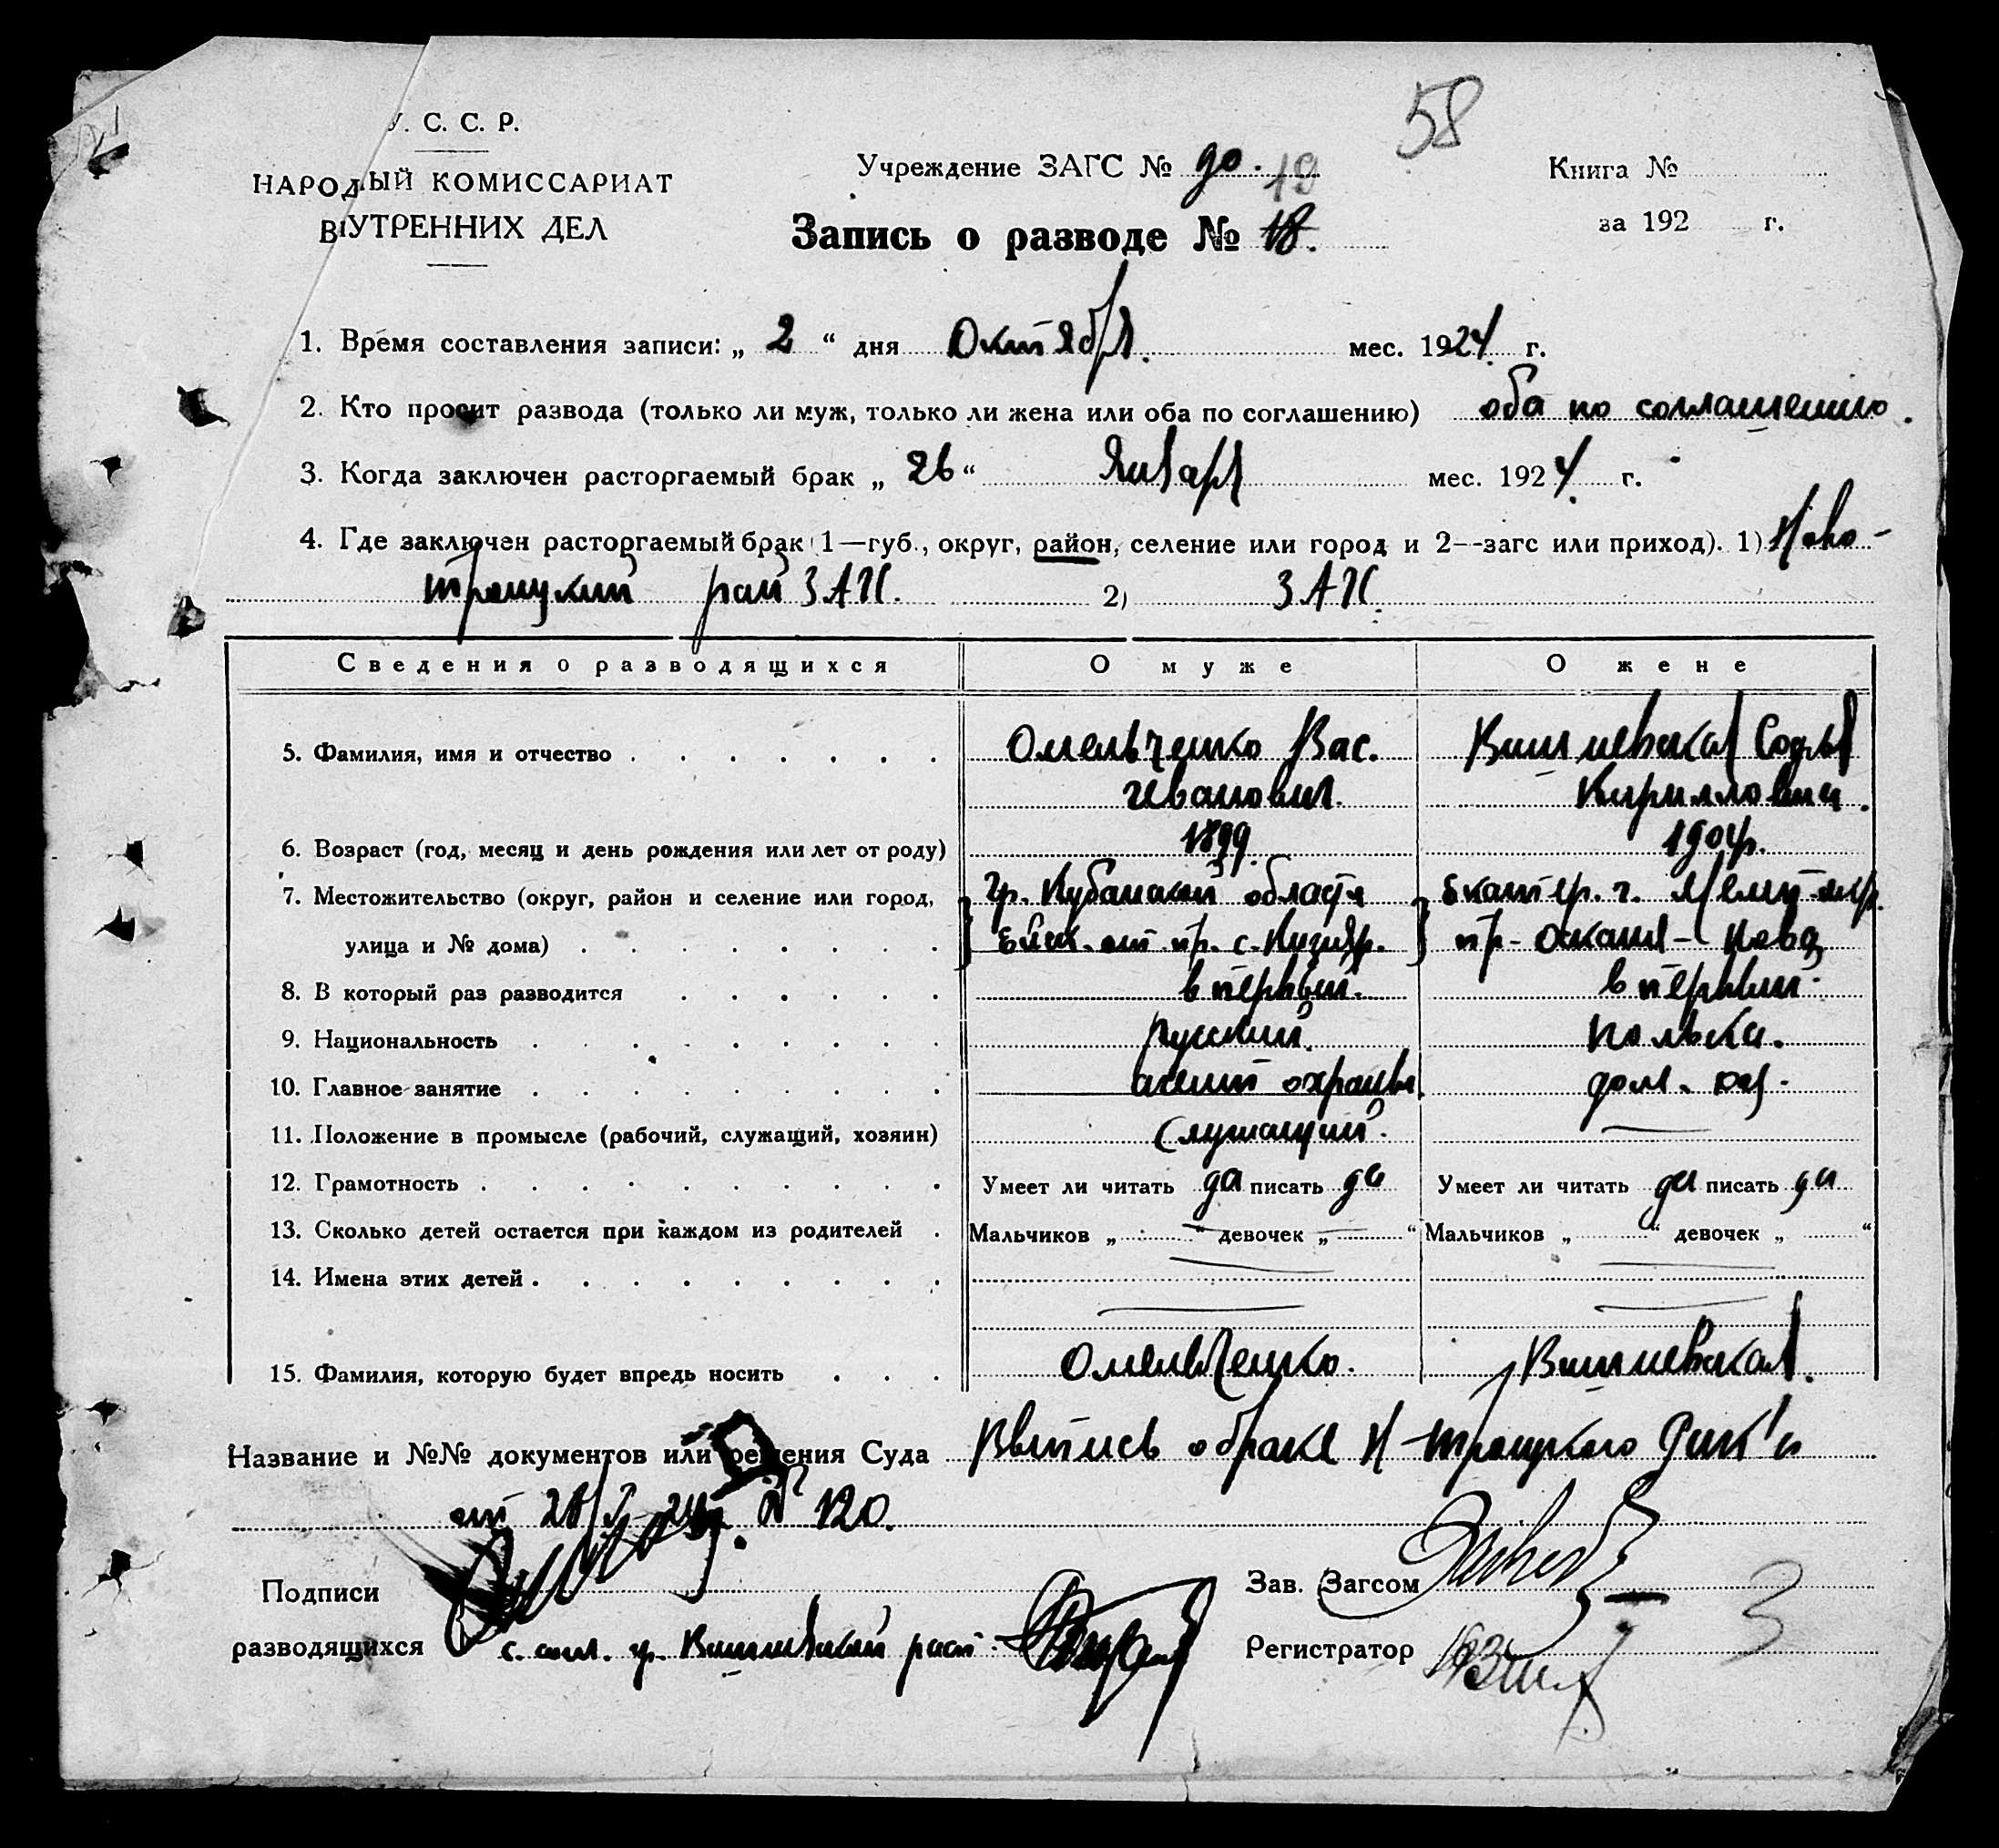 58
У. С. С. Р.
НАРОДНЫЙ КОМИССАРИАТ
ВНУТРЕННИХ ДЕЛ
Учреждение ЗАГС № 90. 19
Книга №
за 192 г.
Запись о разводе № 18.
1. Время составления записи: „ 2 “ дня Октября. мес. 1924 г.
2. Кто просит развода (только ли муж, только ли жена или оба по соглашению) оба по соглашению.
3. Когда заключен расторгаемый брак „ 26 “ Января мес. 1924 г.
4. Где заключен расторгаемый брак (1—губ., округ, район, селение или город и 2—загс или приход). 1) Ново-
троицкий рай ЗАГС. 2) ЗАГС.
Сведения о разводящихся О муже О жене
5. Фамилия, имя и отчество Омельченко Вас. Вишневская Софья
Иванович. Кирилловна.
6. Возраст (год, месяц и день рождения или лет от роду) 1899 1904 р.
7. Местожительство (округ, район и селение или город, гр. Кубанской области Екатер. г.
улица и № дома) пр. с. пр- Аскания- Нова
8. В который раз разводится в первый. в первый.
9. Национальность русский. полька.
10. Главное занятие агент охраны. дом. хоз.
11. Положение в промысле (рабочий, служащий, хозяин) Служащий. —
12. Грамотность Умеет ли читать да писать да Умеет ли читать да писать да
13. Сколько детей остается при каждом из родителей Мальчиков „ — “ девочек „ — “ Мальчиков „ “ девочек „ “
14. Имена этих детей — —
15. Фамилия, которую будет впредь носить Омельченко. Вишневская.
Название и №№ документов или решения Суда Выпись о браке Н-троицкого Рик'а
от 28/I-24 г. № 120.
Подписи
разводящихся гр. Вишневской
Зав. Загсом
Регистратор
3